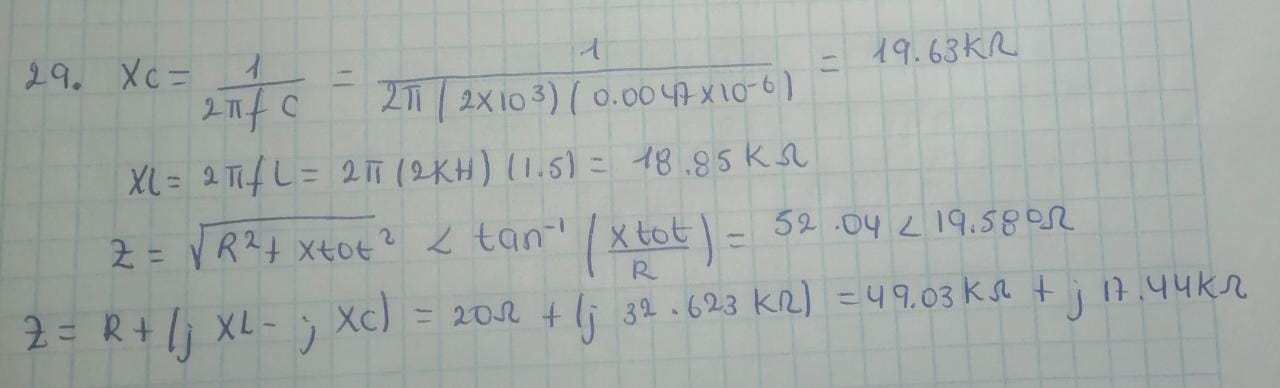 29. XC = 1 / 2πfC = 1 / 2π(2×10³)(0.0047×10⁻⁶) = 19.63KΩ
XL = 2πfL = 2π(2KH)(1.5) = 18.85KΩ
Z = √R²+Xtot² < tan⁻¹(Xtot/R) = 52.04 < 19.580Ω
Z = R+(jXL-jXC) = 20Ω + (j 32.623KΩ) = 49.03KΩ + j 17.44KΩ